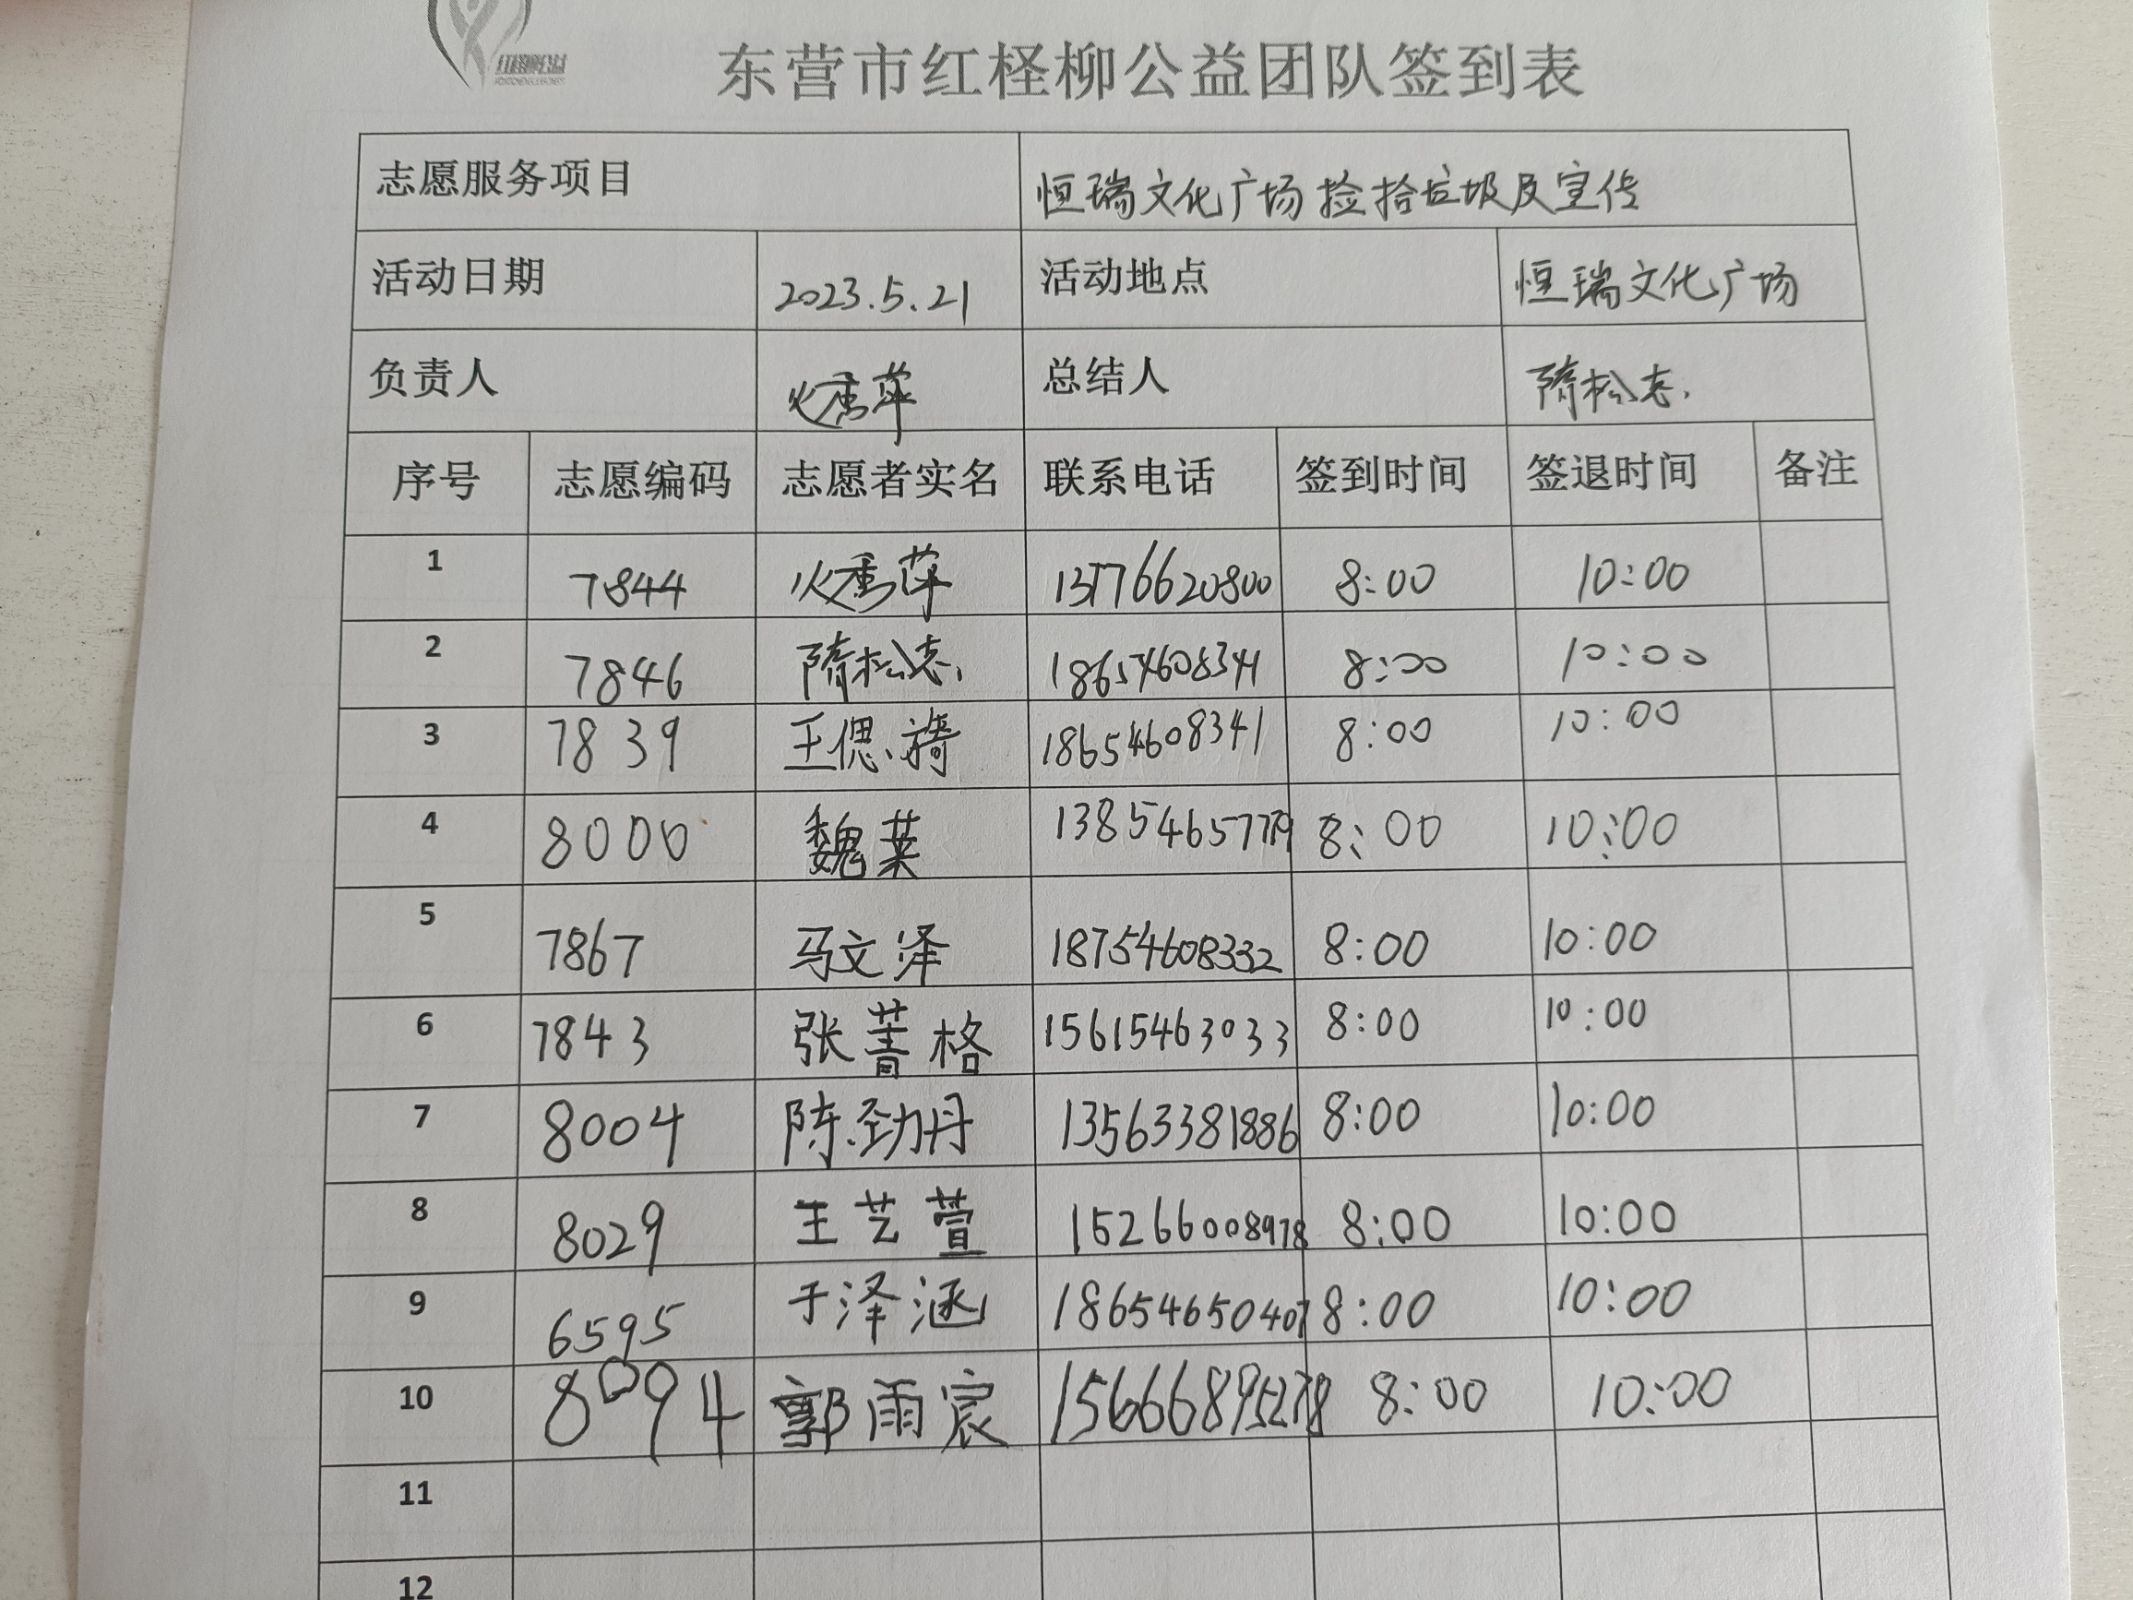 红柽柳公益
东营市红柽柳公益团队签到表
志愿服务项目 恒瑞文化广场捡拾垃圾及宣传
活动日期 2023.5.21 活动地点 恒瑞文化广场
负责人 总结人 隋松志
序号 志愿编码 志愿者实名 联系电话 签到时间 签退时间 备注
1 7844 8:00 10:00
2 7846 隋松志 18654608341 8:00 10:00
3 7839 王偲旖 18654608341 8:00 10:00
4 8000 魏莱 8:00 10:00
5 7867 马文泽 18754608332 8:00 10:00
6 7843 张菁格 15615463033 8:00 10:00
7 8004 陈劲丹 13563381886 8:00 10:00
8 8029 王艺萱 15266008978 8:00 10:00
9 6595 于泽涵 18654650407 8:00 10:00
10 8094 郭雨宸 15666895278 8:00 10:00
11
12